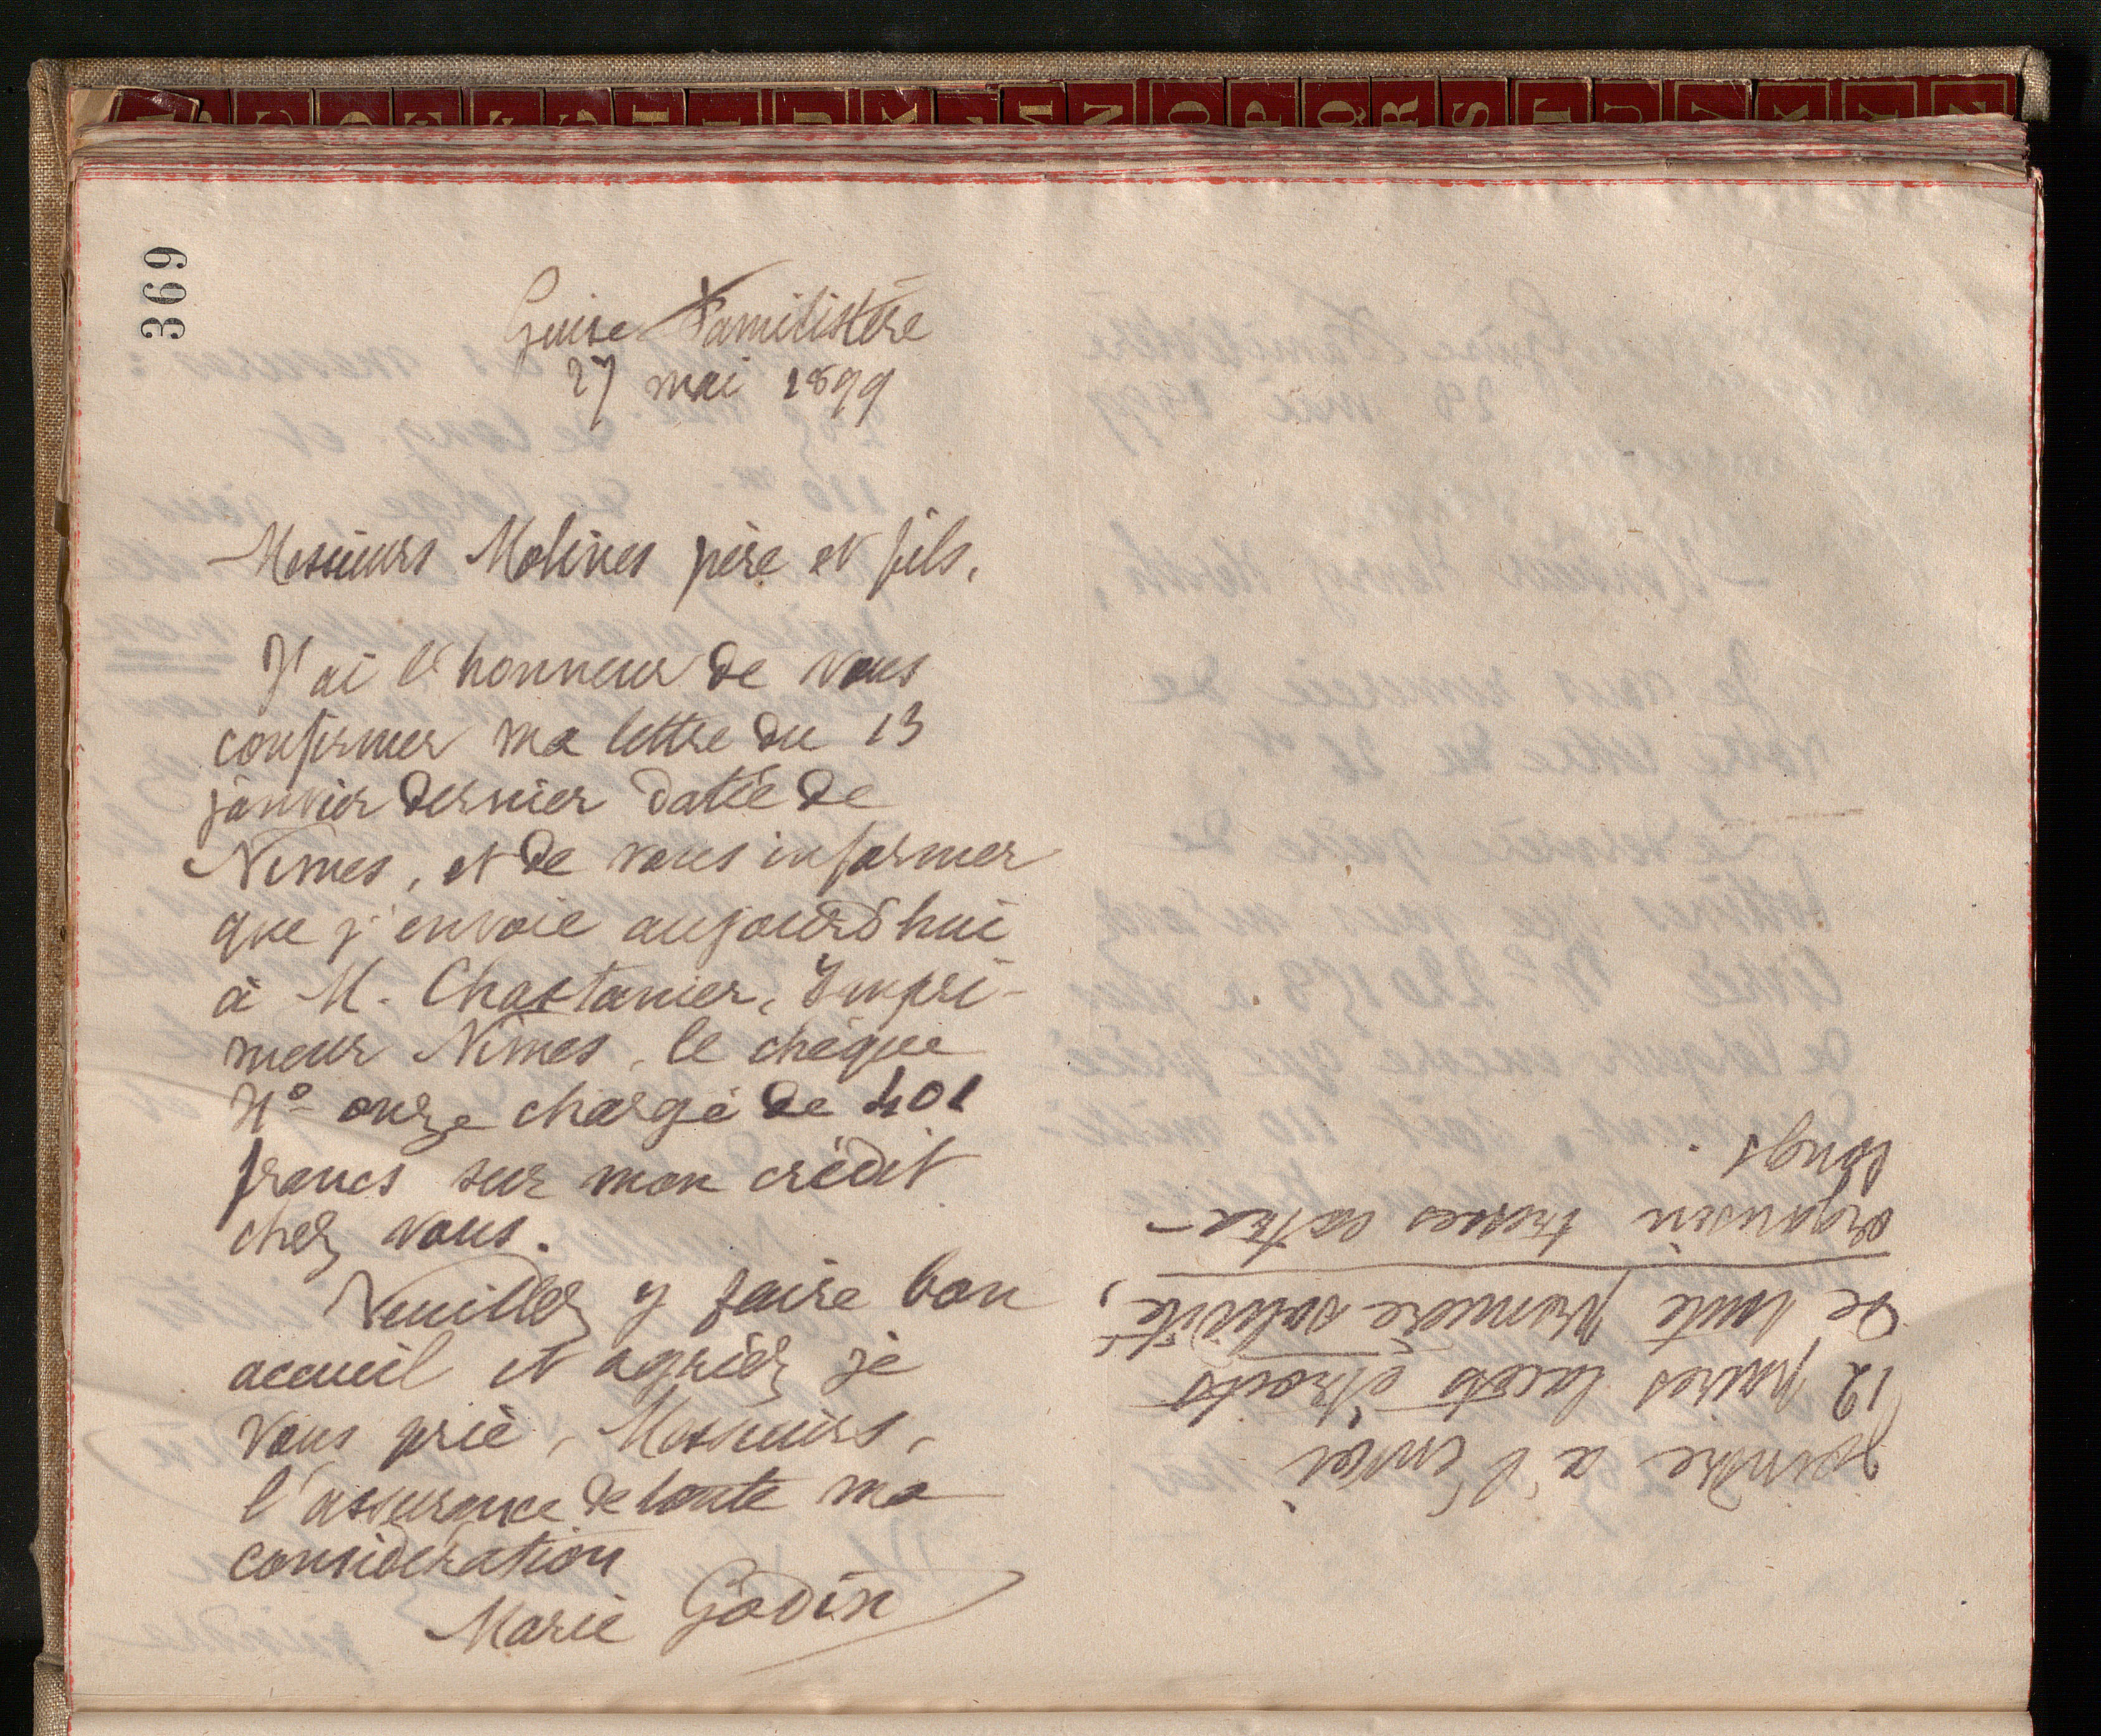 369
Guise Familistère
27 mai 1899
Messieurs Molines père et fils,
J'ai l'honneur de vous
confirmer ma lettre du 13
janvier dernier datée de
Nimes, et de vous informer
que j'envoie aujourd'hui
à M. Chastanier, Impri-
meur Nimes, le chèque
N° onze chargé de 401
francs sur mon crédit
chez vous.
Veuillez y faire bon
accueil et agréez je
vous prie, Messieurs,
l'assurance de toute ma
considération
Marie Godin
joindre à l'envoi
12 paires lacets étroits
de toute première solidité,
organsin tresses extra-
longs.
A C D E F G H I J K L M N O P Q R S T U V X Y Z